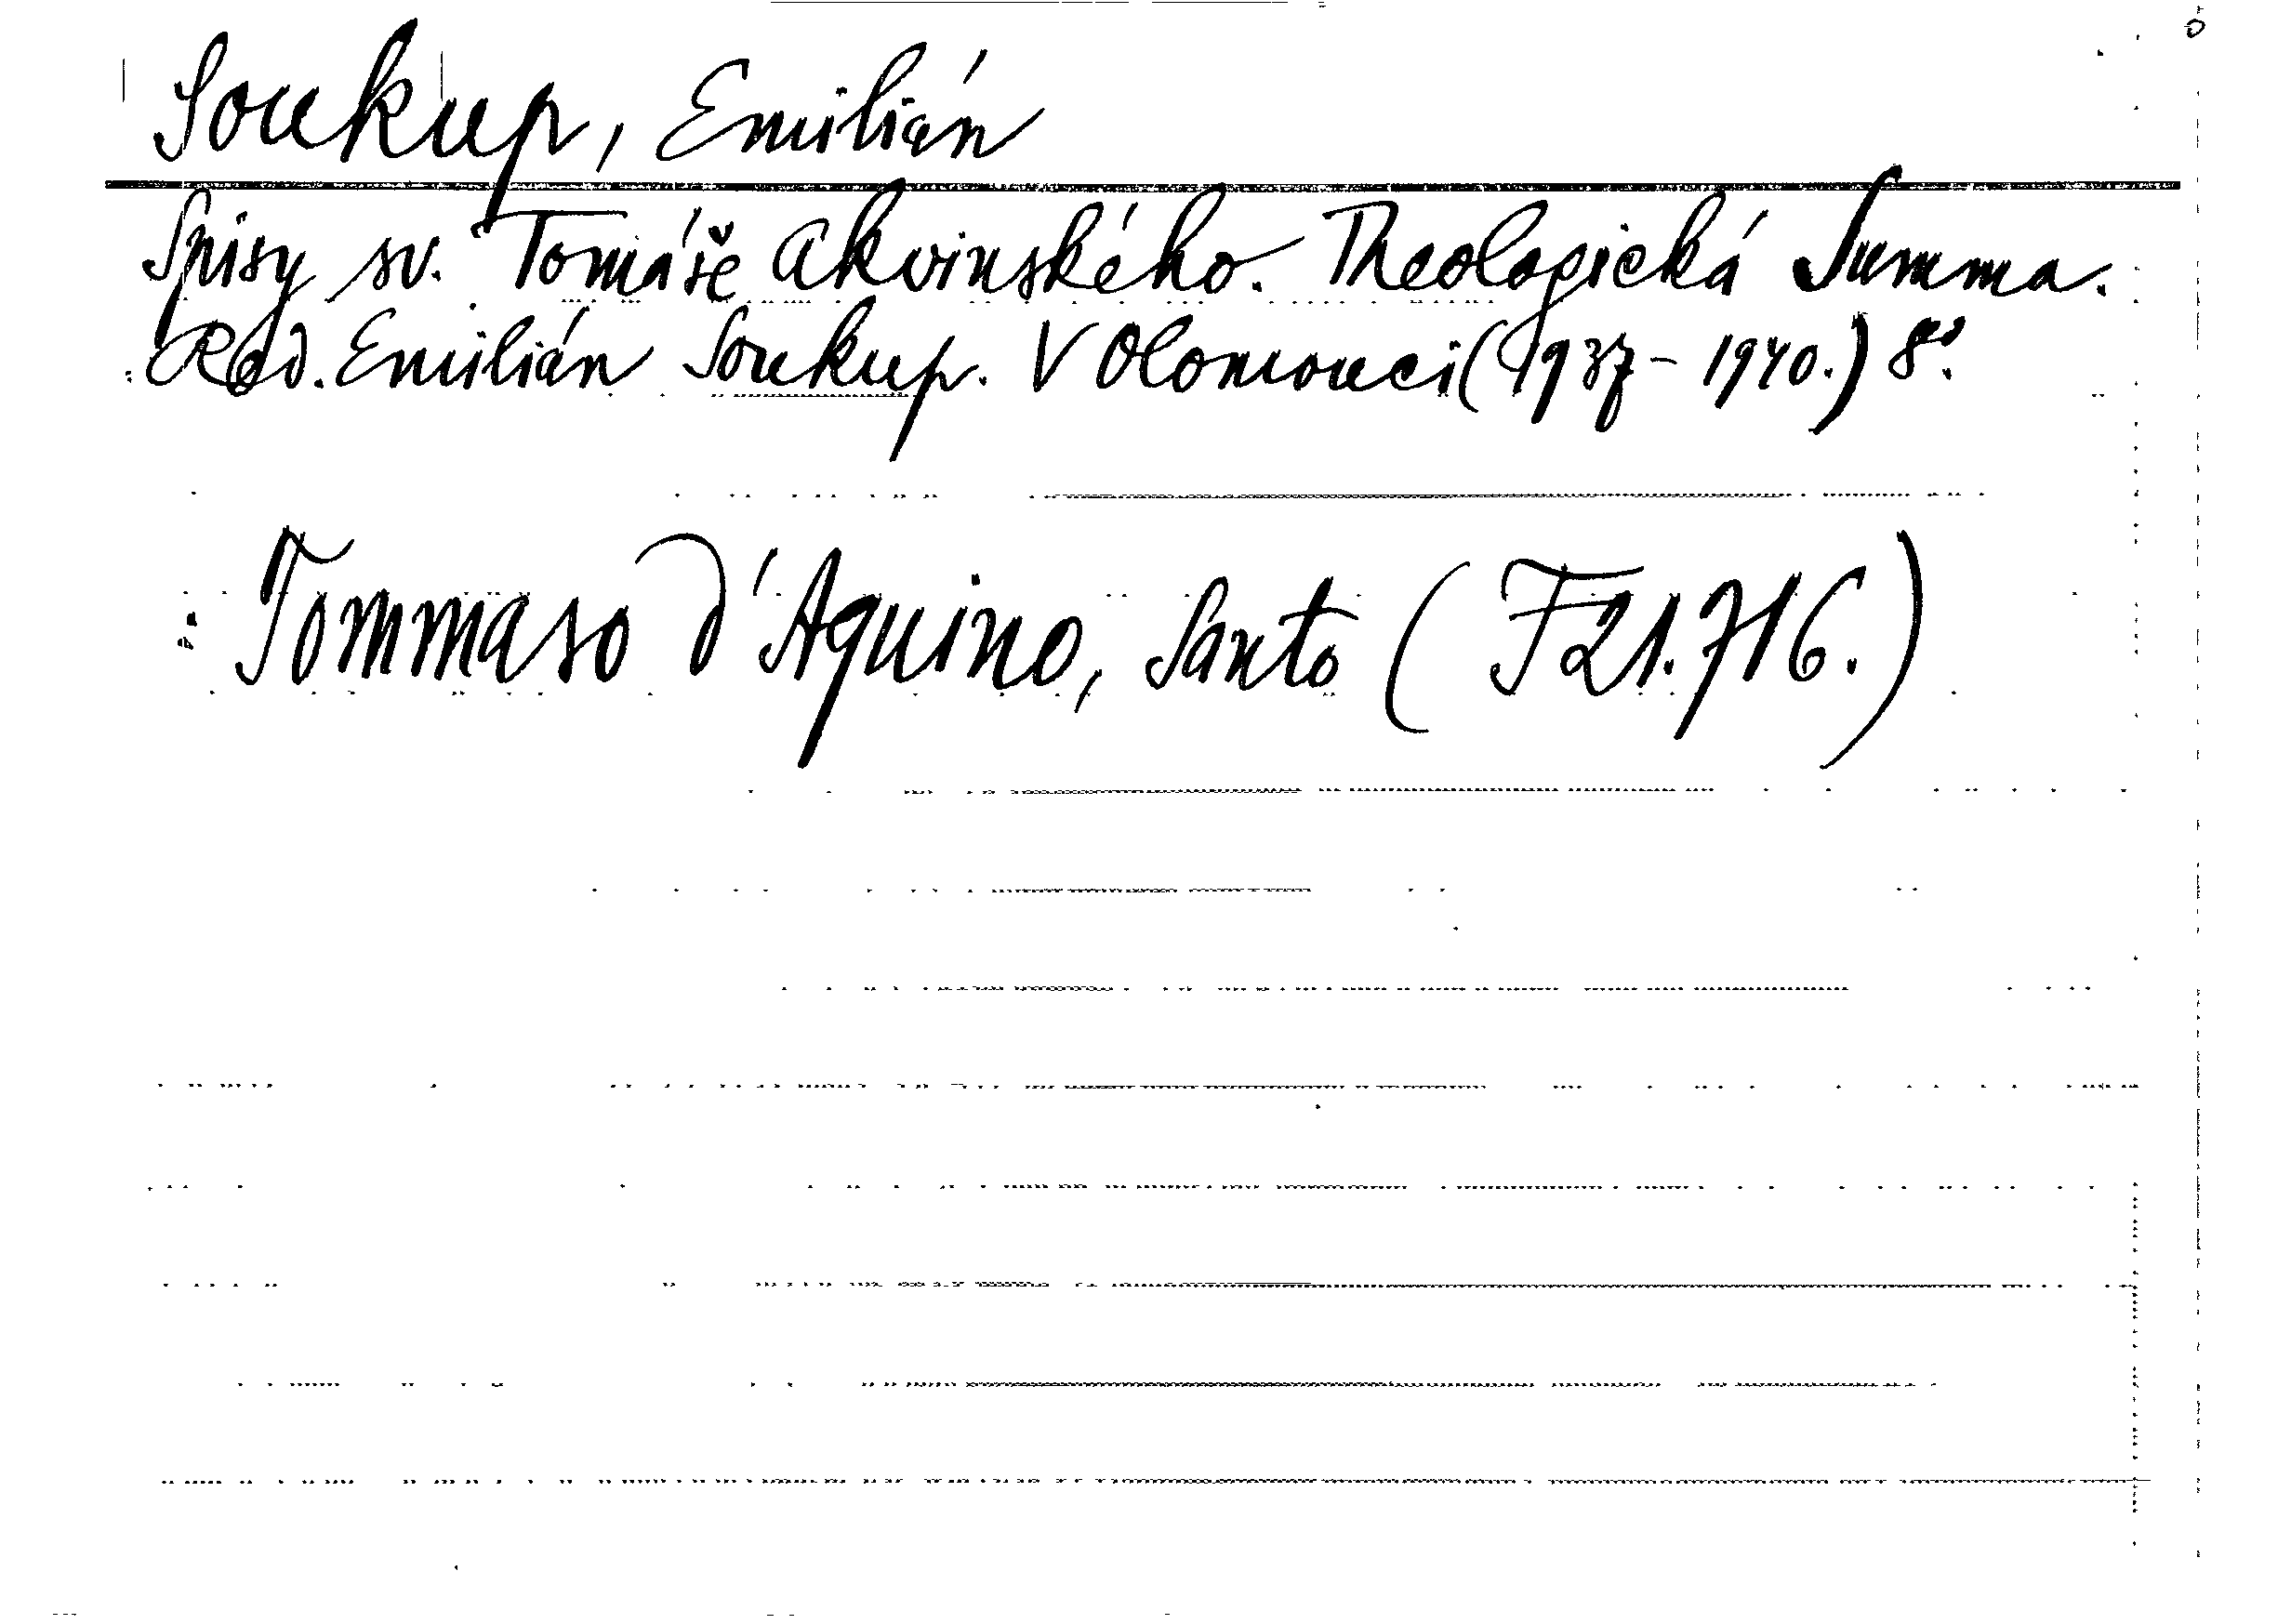 Soukup, Emilián
Spisy sv. Tomáše Akvinského. Theologická Summa.
Red. Emilián Soukup. V Olomouci (1937-1940.) 8º.
Tommaso d'Aquino, Santo (F21.716.)